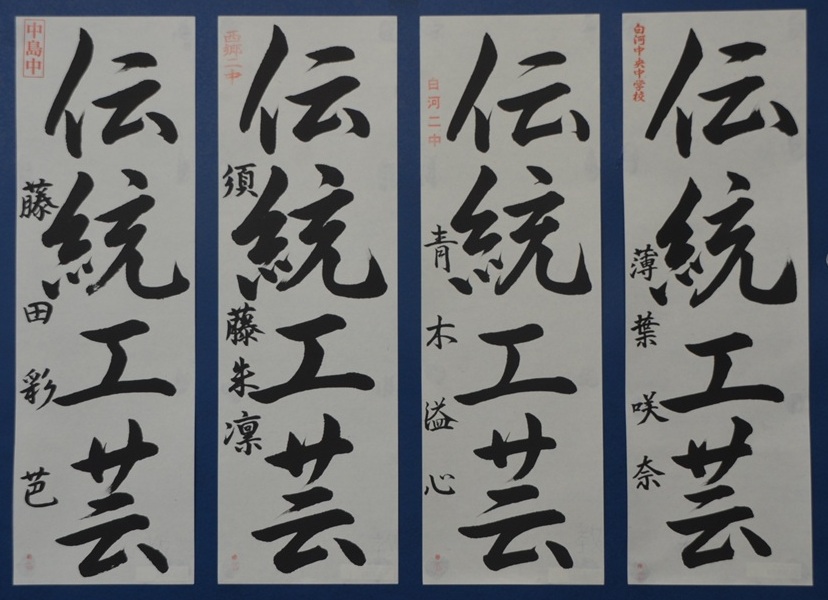 白河中央中学校
伝統工芸
薄葉咲奈
白河二中
伝統工芸
青木溢心
西郷二中
伝統工芸
須藤朱凛
中島中
伝統工芸
藤田彩芭